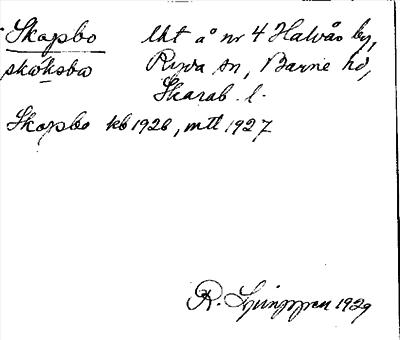 Skogsbo lht å nr 4 Halvås by,
skωksbω Ryra sn, Barne hd,
Skarab. l.
Skogsbo kb 1926, mtl 1927
R. Ljunggren 1929